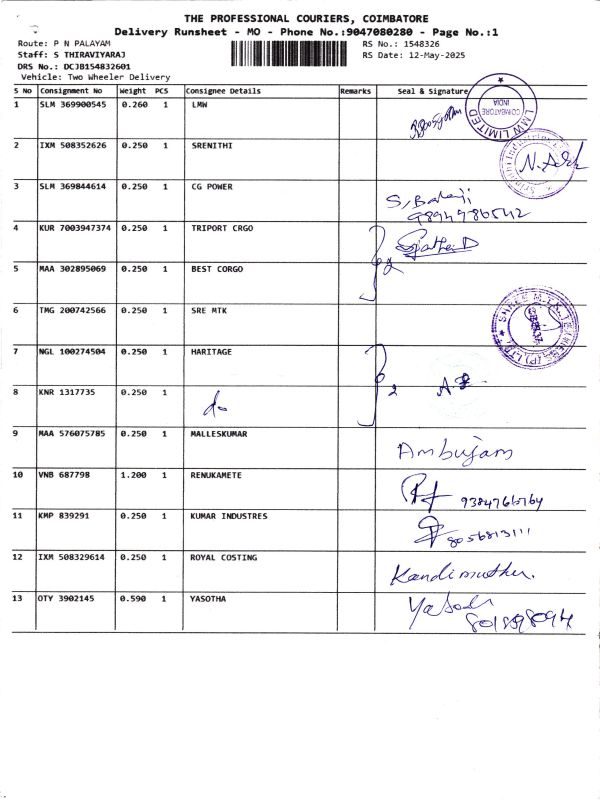 THE PROFESSIONAL COURIERS, COIMBATORE
Delivery Runsheet - MO - Phone No.:9047080280 - Page No.:1
Route: P N PALAYAM RS No.: 1548326
Staff: S THIRAVIYARAJ RS Date: 12-May-2025
DRS No.: DCJB154832601
Vehicle: Two Wheeler Delivery
S No Consignment No Weight PCS Consignee Details Remarks Seal & Signature
1 SLM 369900545 0.260 1 LMW
LMW LIMITED COIMBATORE INDIA
2 IXM 508352626 0.250 1 SRENITHI
3 SLM 369844614 0.250 1 CG POWER S, Balaji
4 KUR 7003947374 0.250 1 TRIPORT CRGO
5 MAA 302895069 0.250 1 BEST CORGO 2
6 TMG 200742566 0.250 1 SRE MTK
7 NGL 100274504 0.250 1 HARITAGE
8 KNR 1317735 0.250 1 do 2
9 MAA 576075785 0.250 1 MALLESKUMAR Ambujam
10 VNB 687798 1.200 1 RENUKAMETE
11 KMP 839291 0.250 1 KUMAR INDUSTRES 8056813111
12 IXM 508329614 0.250 1 ROYAL COSTING Kandimuthu.
13 OTY 3902145 0.590 1 YASOTHA